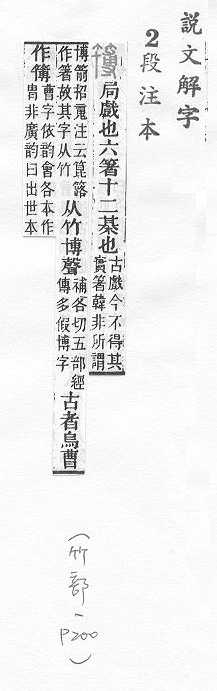 說文解字
2段注本
簙局戲也六箸十二棊也古戲今不得其實箸韓非所謂
博箭招䰟注云箟簬作箸故其字从竹从竹博聲補各切五部經傳多假博字古者烏曹
作簙曹字依韵會各本作冑非廣韵曰出世本
(竹部、P200)